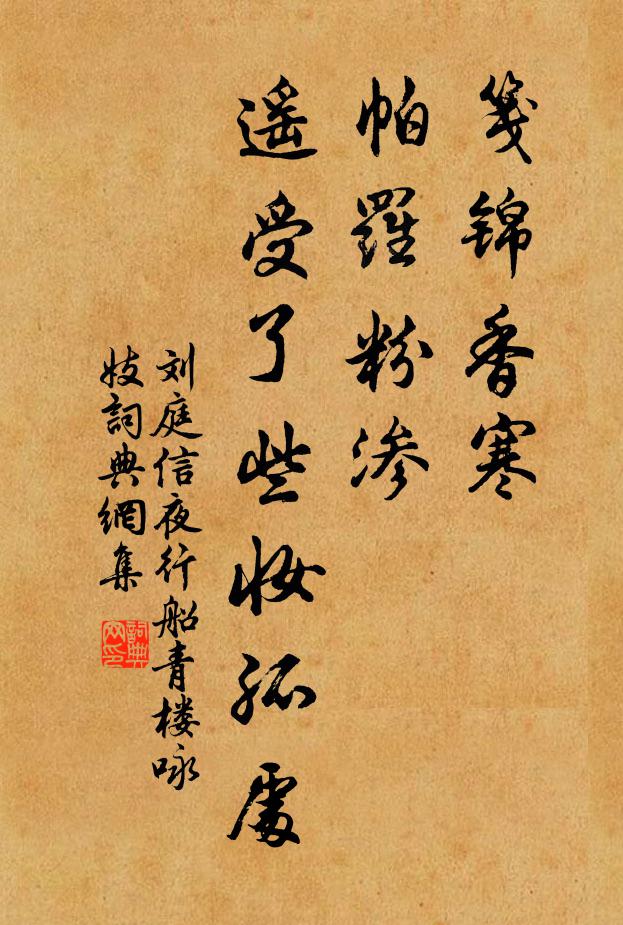 箋锦香寒
帕羅粉渗
遥受了些妆孤處
刘庭信夜行船青楼咏
妓詞典網集
詞典网印